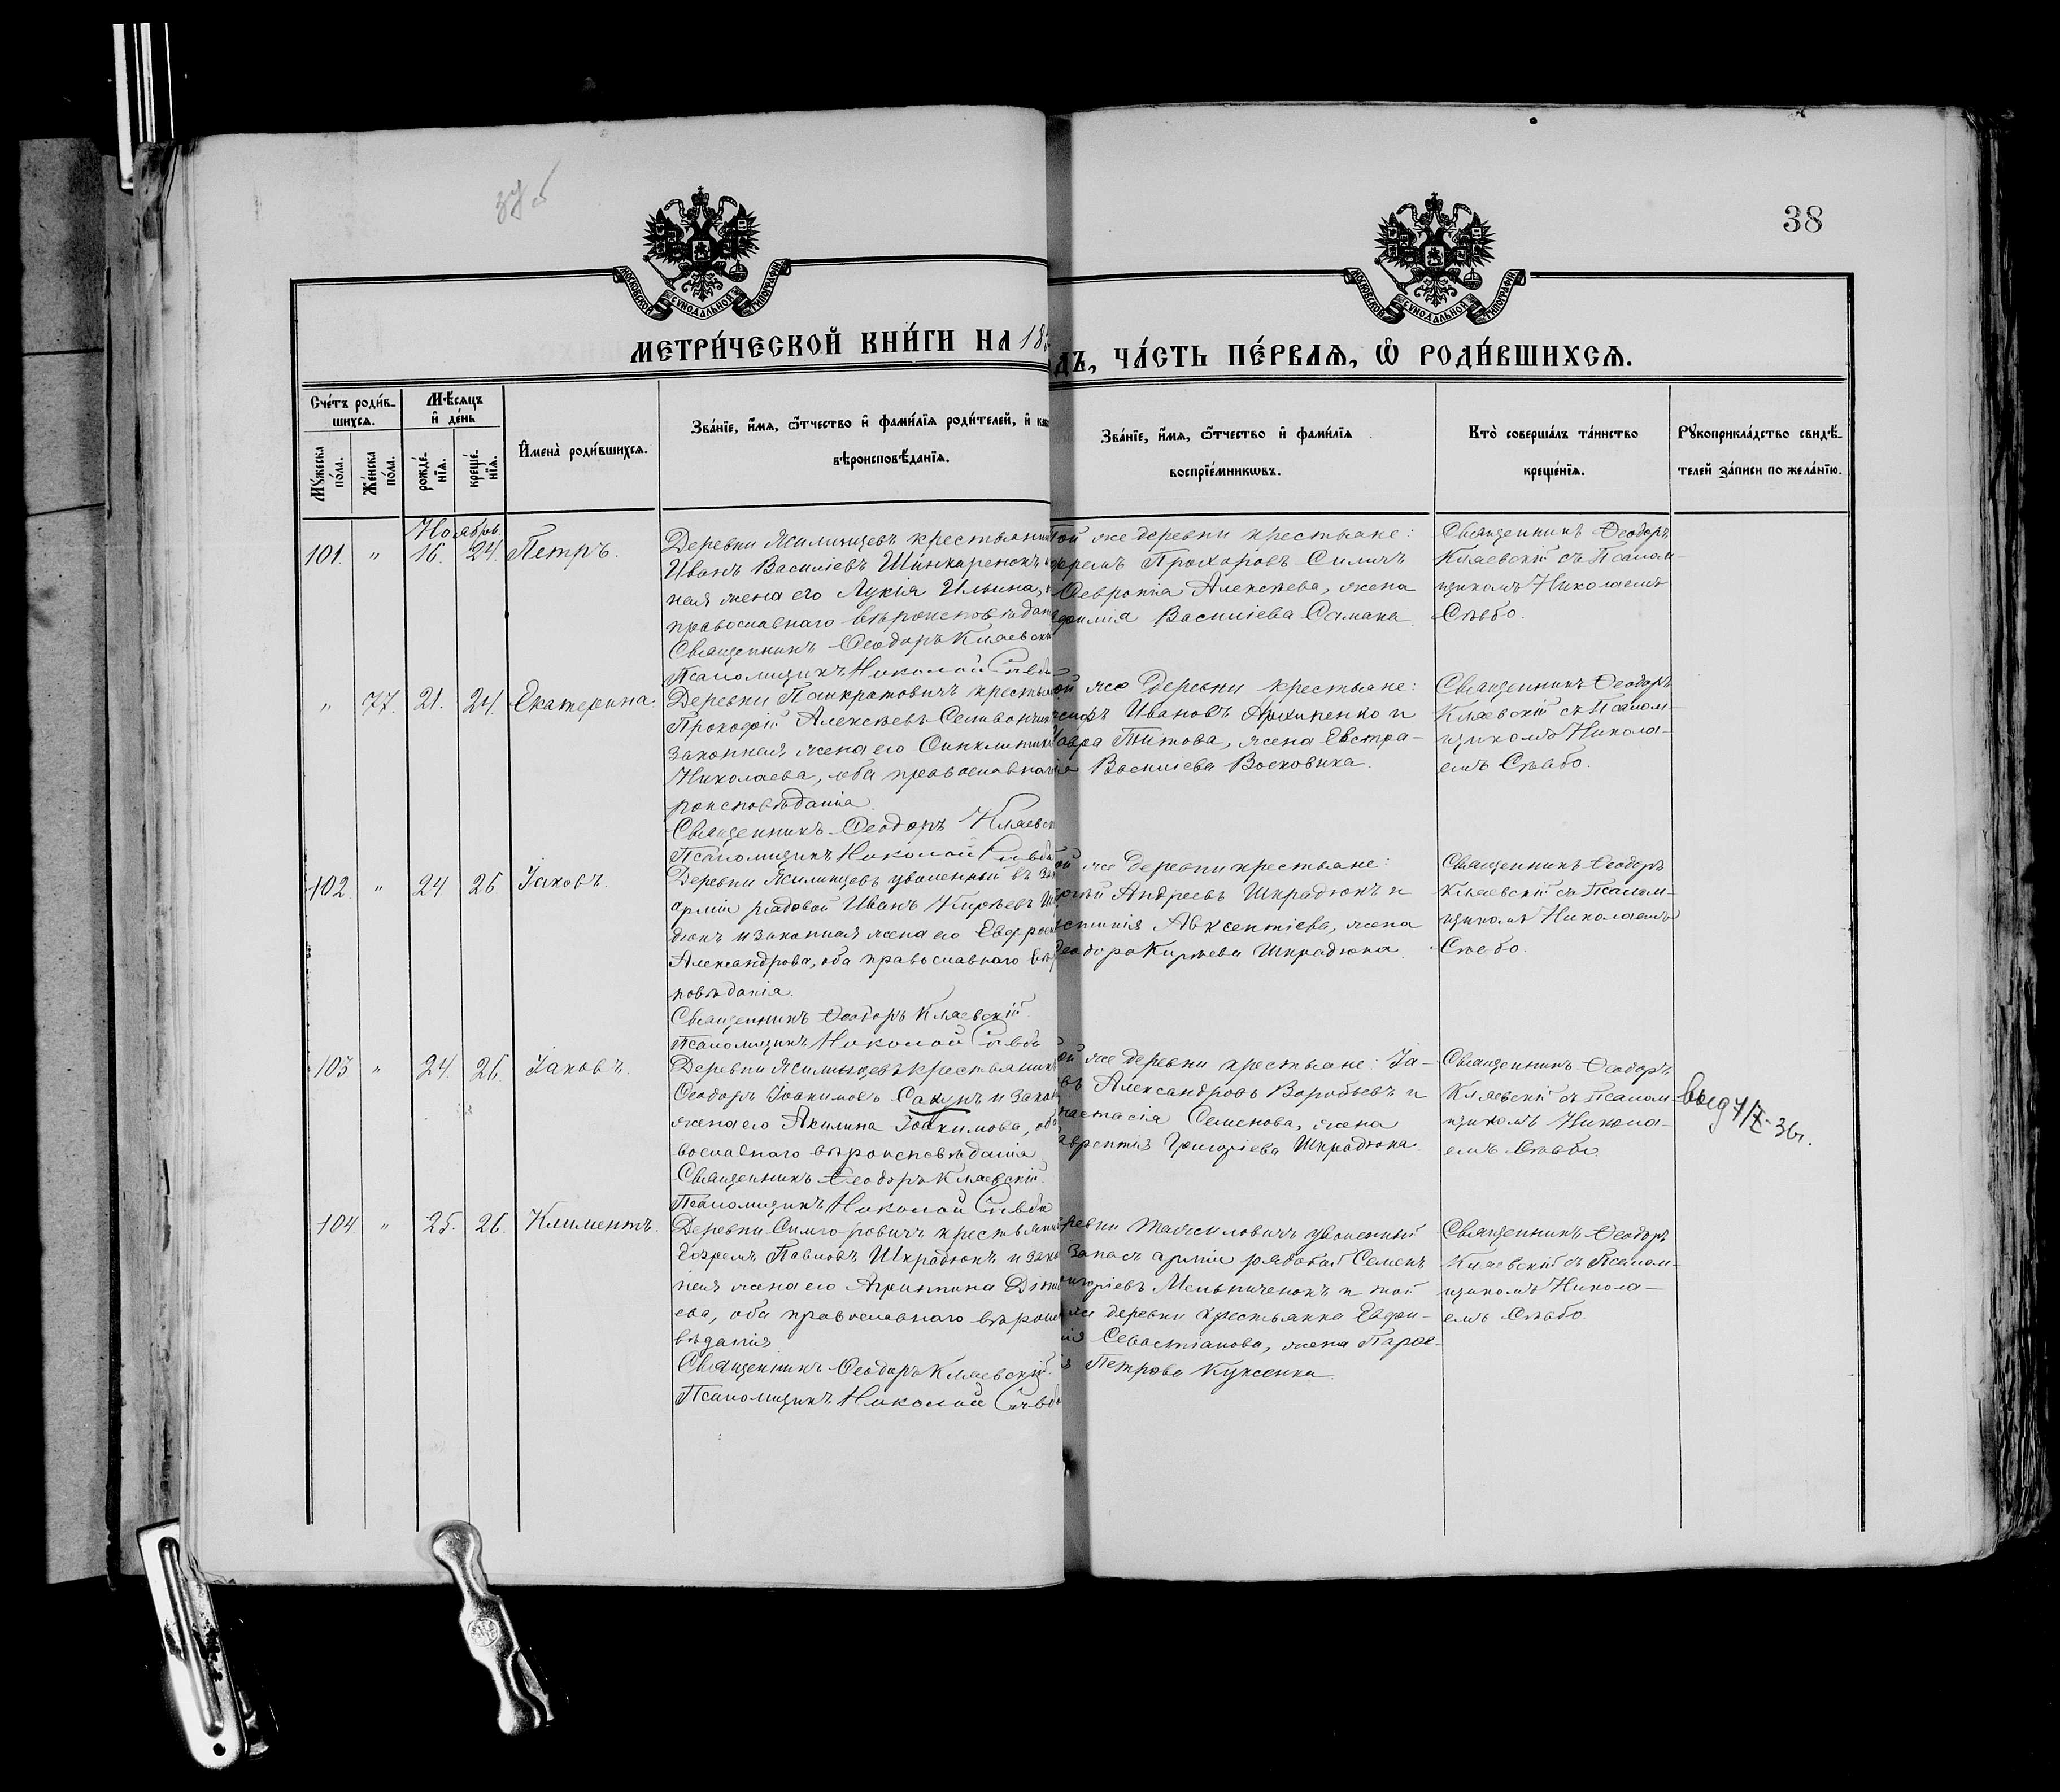 38
МОСКОВСКОЙ СѴНОДАЛЬНОЙ ТИПОГРАФІИ
МОСКОВСКОЙ СѴНОДАЛЬНОЙ ТИПОГРАФІИ
МЕТРИ́ЧЕСКОЙ КНИ́ГИ НА 18
ДЪ, ЧА́СТЬ ПЕ́РВАѦ, Ѡ҆ РОДИ́ВШИХСѦ.
Сче́тъ роди́в-
шихсѧ.
Мꙋ́жеска по́ла.
Же́нска по́ла.
Мѣ́сяцъ
и҆ де́нь
рожде́-
нїѧ.
креще́-
нїѧ.
И҆мена̀ роди́вшихсѧ.
Зва́нїе, и҆́мѧ, ѻ҆́тчество и҆ фами́лїѧ роди́телей, и҆
вѣроисповѣ́данїѧ.
Зва́нїе, и҆́мѧ, ѻ҆́тчество и҆ фами́лїѧ
воспрїе́мникѡвъ.
Кто̀ соверша́лъ та́инство
креще́нїѧ.
Рꙋкоприкла́дство свидѣ́-
телей за́писи по жела́нїю.
Ноябрь
101. " 16. 24. Петръ.
Деревни Жилинцевъ крестьянин
Иванъ Василіевъ Шинкаренокъ
ная жена его Лукія Ильина,
православнаго вѣроисповѣдан
Священникъ Ѳеодоръ Кляевскі
Псаломщикъ Николай
ой же деревни крестьяне:
Прохоровъ Силичъ
Февронія Алексѣева, жена
Василіева Самака.
Священникъ Ѳеодоръ
Кляевскій съ Псалом-
щикомъ Николаемъ
" 77. 21. 24. Екатерина.
Деревни Панкратовичъ крестья
Прокофій Алексѣевъ
законная жена его
Николаева, оба православнаго
роисповѣданія.
Священникъ Ѳеодоръ Кляевск
Псаломщикъ Николай
ой же деревни крестьяне:
Ивановъ Архипенко и
Титова, жена Евстра-
Василіева Восковика.
Священникъ Ѳеодоръ
Кляевскій съ Псалом-
щикомъ Никола-
емъ
102. " 24 26. Іаковъ.
Деревни Жилинцевъ уволенный въ
арміи рядовой Иванъ Кирѣевъ
дюкъ и законная жена его Евфрос
Александрова, оба православнаго вѣр
повѣданія.
Священникъ Ѳеодоръ Кляевскій
Псаломщикъ Николай
ой же деревни крестьяне:
Андреевъ Шкрадюкъ и
Авксентіева, жена
Ѳеодора Кирѣева Шкрадюка.
Священникъ Ѳеодоръ
Кляевскій съ Псалом-
щикомъ Николаемъ
103 " 24. 26. Іаковъ.
Деревни Жилинцевъ крестьянинъ
Ѳеодоръ Іоакимовъ Сакунъ и закон
жена его Акилина Іоакимова,
вославнаго вѣроисповѣданія
Священникъ Ѳеодоръ Кляевскій.
Псаломщикъ Николай
ой же деревни крестьяне: Іа-
въ Александровъ Воробьевъ и
настасія Семенова, жена
аврентія Григоріева Шкрадюка.
Священникъ Ѳеодоръ
Кляевскій съ Псалом-
щикомъ Никола-
емъ
104. " 25. 26. Климентъ.
Деревни крестьянин
Павловъ Шкрадюкъ и зако
ная жена его Агрипина
ева, оба православнаго вѣроис
вѣданія
Священникъ Ѳеодоръ Кляевскій.
Псаломщикъ Николай
ревни уволенный
запасъ арміи рядовой Семенъ
ригоріевъ Мельниченокъ и той
же деревни крестьянка Евдок-
ія Севастіанова, жена
Петрова Куксенка.
Священникъ Ѳеодоръ
Кляевскій съ Псалом-
щикомъ Никола-
емъ